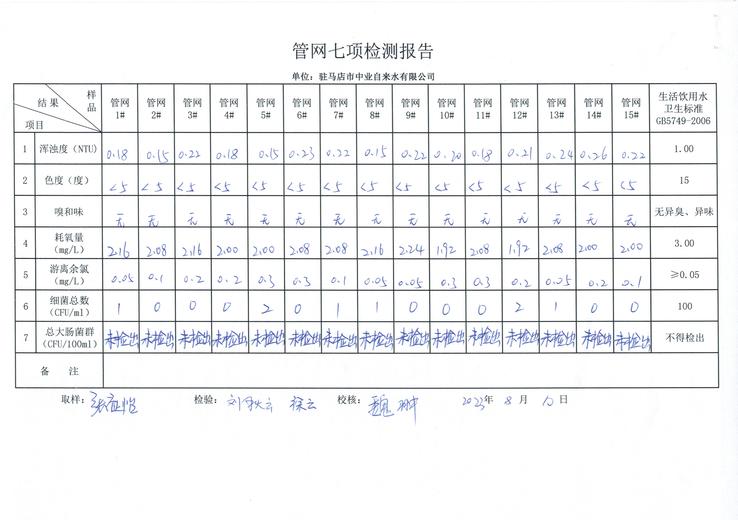 管网七项检测报告
单位：驻马店市中业自来水有限公司
结果 样品 项目 管网1# 管网2# 管网3# 管网4# 管网5# 管网6# 管网7# 管网8# 管网9# 管网10# 管网11# 管网12# 管网13# 管网14# 管网15# 生活饮用水卫生标准GB5749-2006
1 浑浊度（NTU） 0.18 0.15 0.22 0.18 0.15 0.23 0.22 0.15 0.22 0.20 0.18 0.21 0.24 0.26 0.22 1.00
2 色度（度） <5 <5 <5 <5 <5 <5 <5 <5 <5 <5 <5 <5 <5 <5 <5 15
3 嗅和味 无 无 无 无 无 无 无 无 无 无 无 无 无 无 无 无异臭、异味
4 耗氧量（mg/L） 2.16 2.08 2.16 2.00 2.00 2.08 2.08 2.16 2.24 1.92 2.08 1.92 2.08 2.00 2.00 3.00
5 游离余氯（mg/L） 0.05 0.1 0.2 0.2 0.3 0.3 0.1 0.05 0.05 0.3 0.3 0.2 0.05 0.2 0.1 ≥0.05
6 细菌总数（CFU/ml） 1 0 0 0 2 0 1 1 0 0 0 2 1 0 0 100
7 总大肠菌群（CFU/100ml） 未检出 未检出 未检出 未检出 未检出 未检出 未检出 未检出 未检出 未检出 未检出 未检出 未检出 未检出 未检出 不得检出
备 注
取样： 检验： 刘秋云 校核： 2023年 8 月 10 日